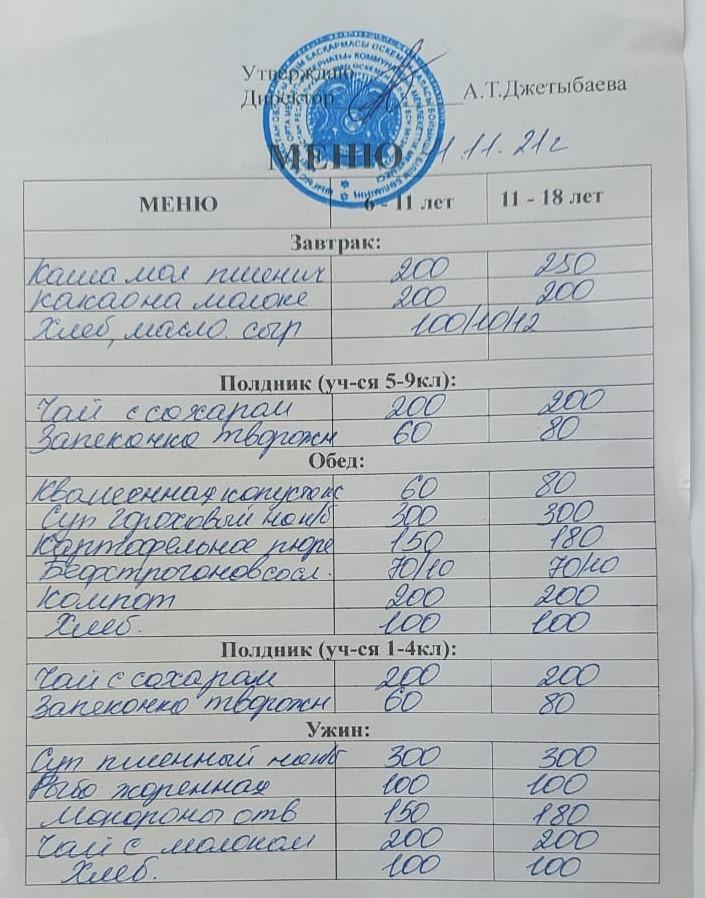 Утверждаю
Директор А.Т.Джетыбаева
МЕНЮ 11.11.21г
МЕНЮ 6 - 11 лет 11 - 18 лет
Завтрак:
Каша мол пшенич 200 250
какао на молоке 200 200
Хлеб, масло. сыр 100/10/12
Полдник (уч-ся 5-9кл):
Чай с сахарам 200 200
Запеконка творожн 60 80
Обед:
Квашенная капуста 60 80
Суп гороховый на к/б 300 300
Картофельное пюре 150 180
Бефстрогонов сосл. 70/10 70/10
Компот 200 200
Хлеб. 100 100
Полдник (уч-ся 1-4кл):
Чай с сахарам 200 200
Запеконка творожн 60 80
Ужин:
Суп пшенный на к/б 300 300
Рыба жаренная 100 100
Макароны отв 150 180
Чай с молоком 200 200
Хлеб. 100 100